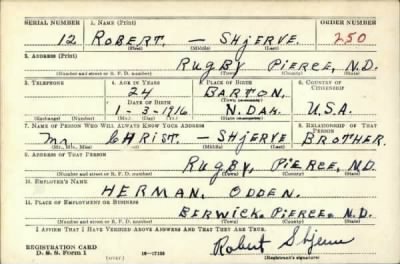 SERIAL NUMBER 1. NAME (Print) ORDER NUMBER
12 ROBERT. — SHJERVE. 250
(First) (Middle) (Last)
2. ADDRESS (Print)
RUGBY PIERCE, N.D.
(Number and street or R. F. D. number) (Town) (County) (State)
3. TELEPHONE 4. AGE IN YEARS 5. PLACE OF BIRTH 6. COUNTRY OF CITIZENSHIP
24 BARTON,
DATE OF BIRTH (Town or county)
1-3-1916 N.DAK. U.S.A.
(Exchange) (Number) (Mo.) (Day) (Yr.) (State or country)
7. NAME OF PERSON WHO WILL ALWAYS KNOW YOUR ADDRESS 8. RELATIONSHIP OF THAT PERSON
Mr. CHRIST. — SHJERVE BROTHER.
(Mr., Mrs., Miss) (First) (Middle) (Last)
9. ADDRESS OF THAT PERSON
RUGBY, PIERCE, N.D.
(Number and street or R. F. D. number) (Town) (County) (State)
10. EMPLOYER'S NAME
HERMAN, ODDEN.
11. PLACE OF EMPLOYMENT OR BUSINESS
BERWICK. PIERCE. N.D.
(Number and street or R. F. D. number) (Town) (County) (State)
I AFFIRM THAT I HAVE VERIFIED ABOVE ANSWERS AND THAT THEY ARE TRUE.
Robert Shjerve
REGISTRATION CARD
D. S. S. Form 1 (over) 16-17105 (Registrant's signature)